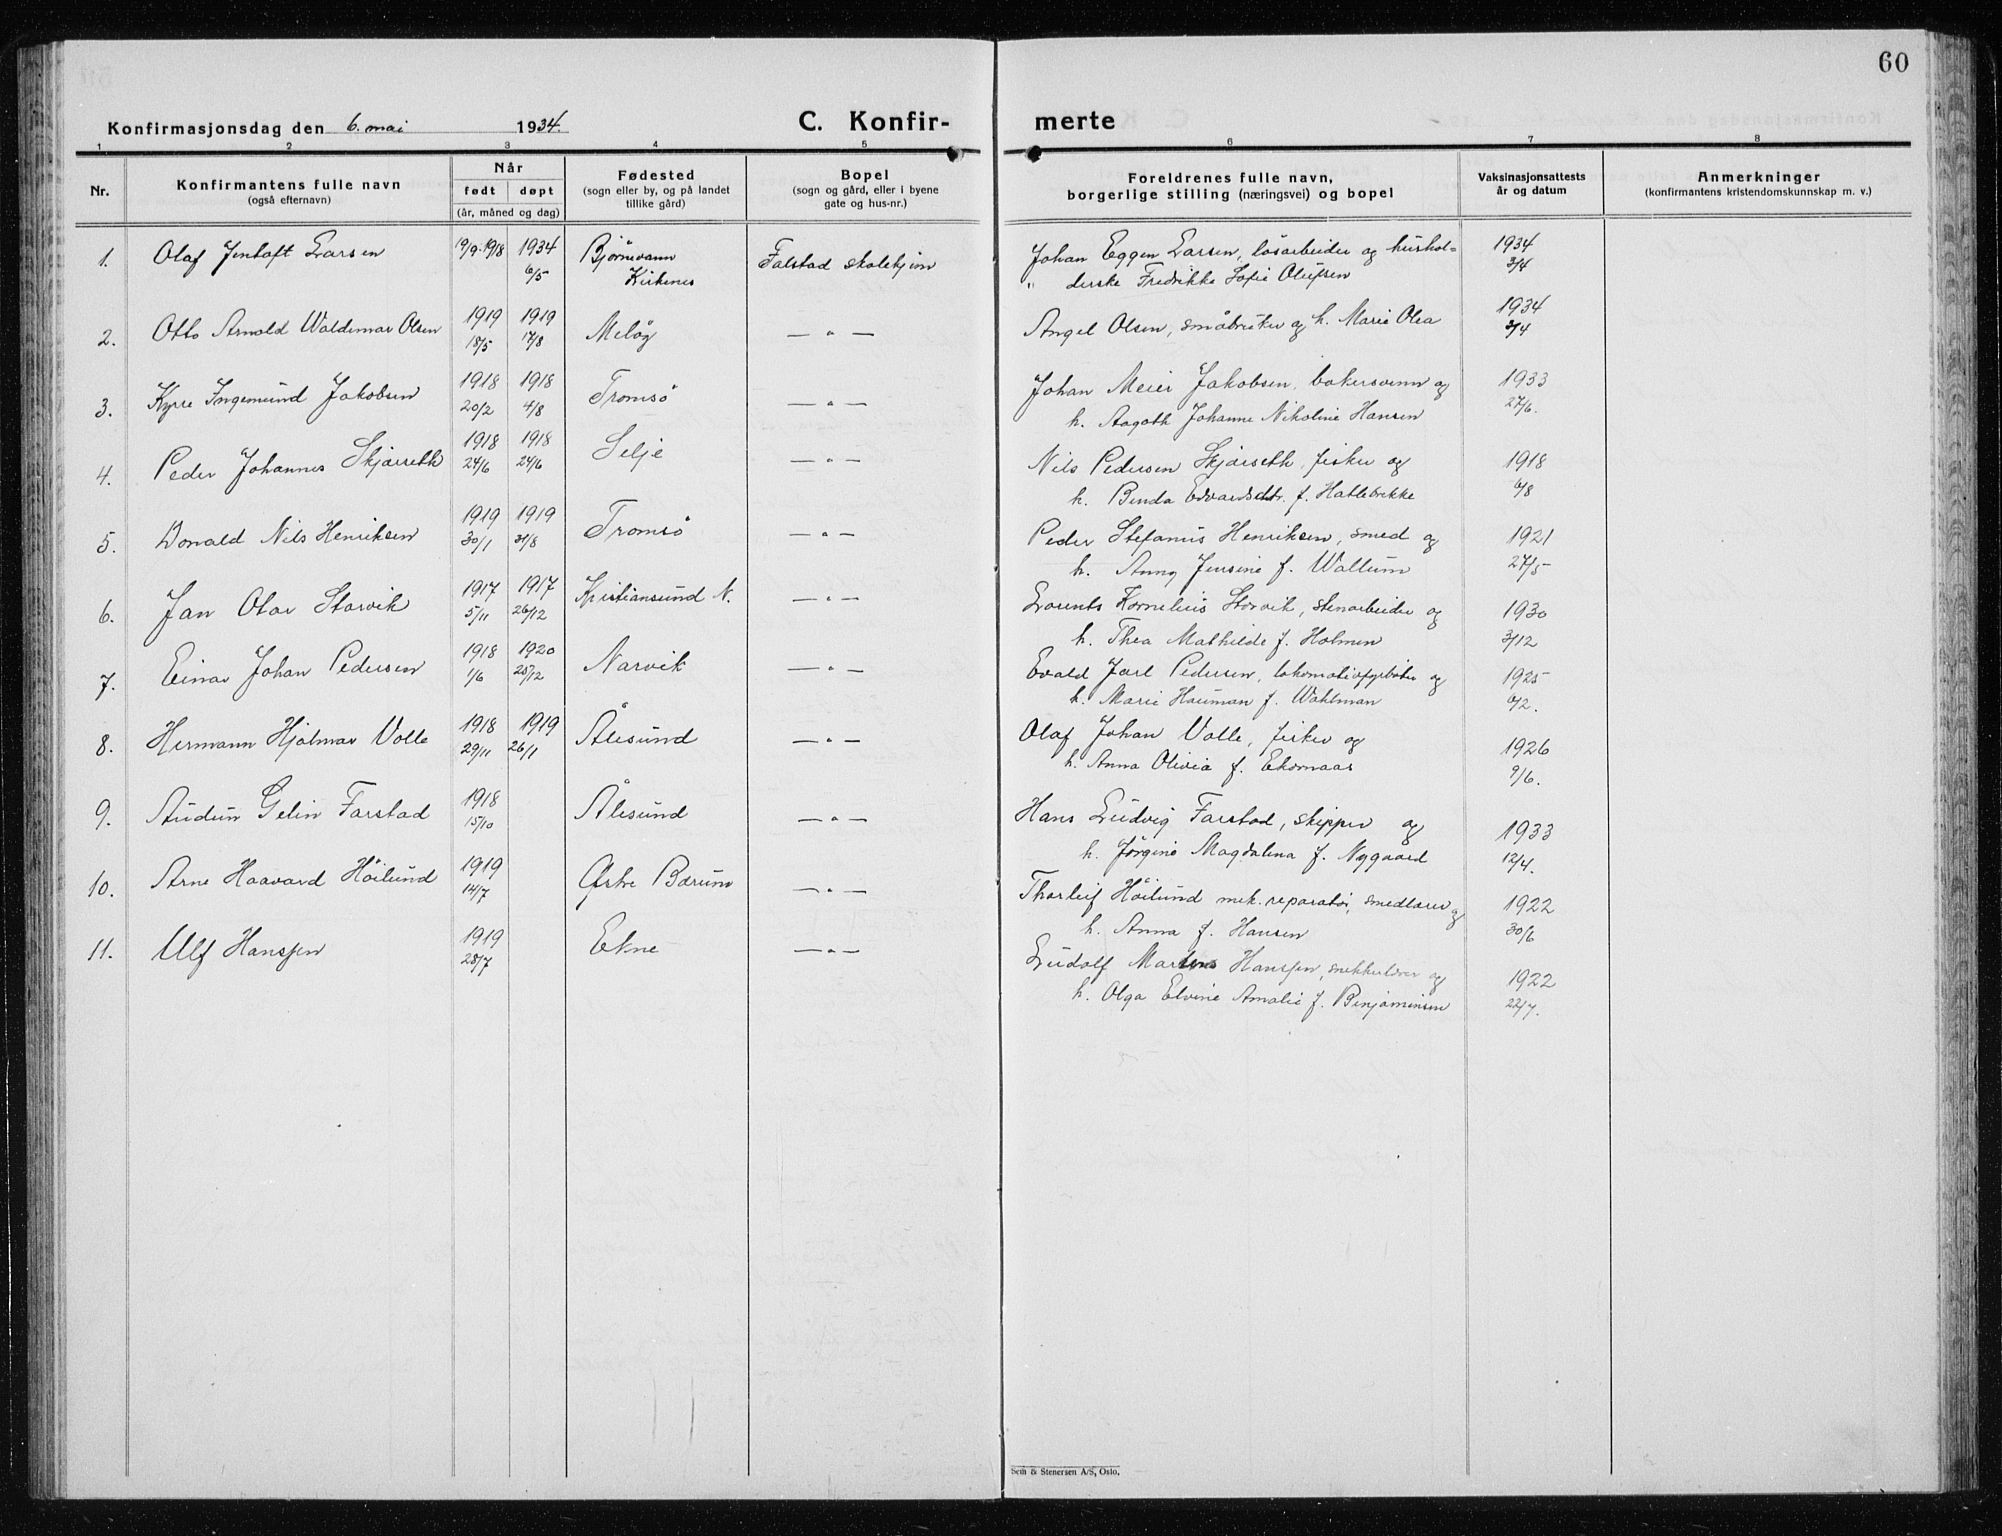 60
Konfirmasjonsdag den 6. mai 1934.
C. Konfir-
merte
1 2 3 4 5 6 7 8
Nr.
Konfirmantens fulle navn
(også efternavn)
Når
født døpt
(år, måned og dag)
Fødested
(sogn eller by, og på landet
tillike gård)
Bopel
(sogn og gård, eller i byene
gate og hus-nr.)
Foreldrenes fulle navn,
borgerlige stilling (næringsvei) og bopel
Vaksinasjonsattests
år og datum
Anmerkninger
(konfirmantens kristendomskunnskap m. v.)
1. Olaf Jentoft Larsen 19/9-1918 1934 Bjørnevann Falstad skolehjem Johan Eggen Larsen, løsarbeider og hushol- 1934
6/5 Kirkenes " derske Fredrikke Sofie Olufsen 3/4
2. Otto Arnold Waldemar Olsen 1919 1919 Meløy — " — Angel Olsen, småbruker og h. Marie Olea 1934
18/5 17/8 3/4
3. Kyrre Ingemund Jakobsen 1918 1918 Tromsø — " — Johan Meier Jakobsen, bakersvenn og 1933
20/2 4/8 h. Aagoth Johanne Nikoline Hansen 27/6.
4. Peder Johannes Skjærseth 1918 1918 Selje — " — Nils Pedersen Skjærseth, fisker og 1918
24/6 24/6 h. Benda Edvardsdtr. f. Hatlebrekke 6/8
5. Donald Nils Henriksen 1919 1919 Tromsø — " — Peder Stefanus Henriksen, smed og 1921
30/1 31/8 h. Anny Jensine f. Wallum 27/5
6. Jan Olav Storvik 1917 1917 Kristiansund N. — " — Lorents Kornelius Storvik, stenarbeider og 1930
5/11 26/12 h. Thea Mathilde f. Holmen 3/12
7. Einar Johan Pedersen 1918 1920 Narvik — " — Evald Jarl Pedersen, lokomotivfyrbøter og 1925
1/6 25/12 h. Marie Hauman f. Wahlman 6/2.
8. Hermann Hjalmar Volle 1918 1919 Ålesund — " — Olaf Johan Volle, fisker og 1926
29/11 26/1 h. Anna Olivia f. Ekornaas 9/6.
9. Audun Gelin Farstad 1918 Ålesund — " — Hans Ludvig Farstad, skipper og 1933
15/10 h. Jørgine Magdalena f. Nygaard 12/4.
10. Arne Haavard Höilund 1919 Østre Bærum — " — Thorleif Höilund mek. reparatør, smedlærer og 1922
14/7 h. Anna f. Hansen 30/6
11. Ulf Hanssen 1919 Ekne — " — Ludolf Martens Hanssen, snekkerlærer og 1922
28/7 h. Olga Elvine Amalie f. Benjaminsen 22/7.
Seth & Stenersen A/S, Oslo.